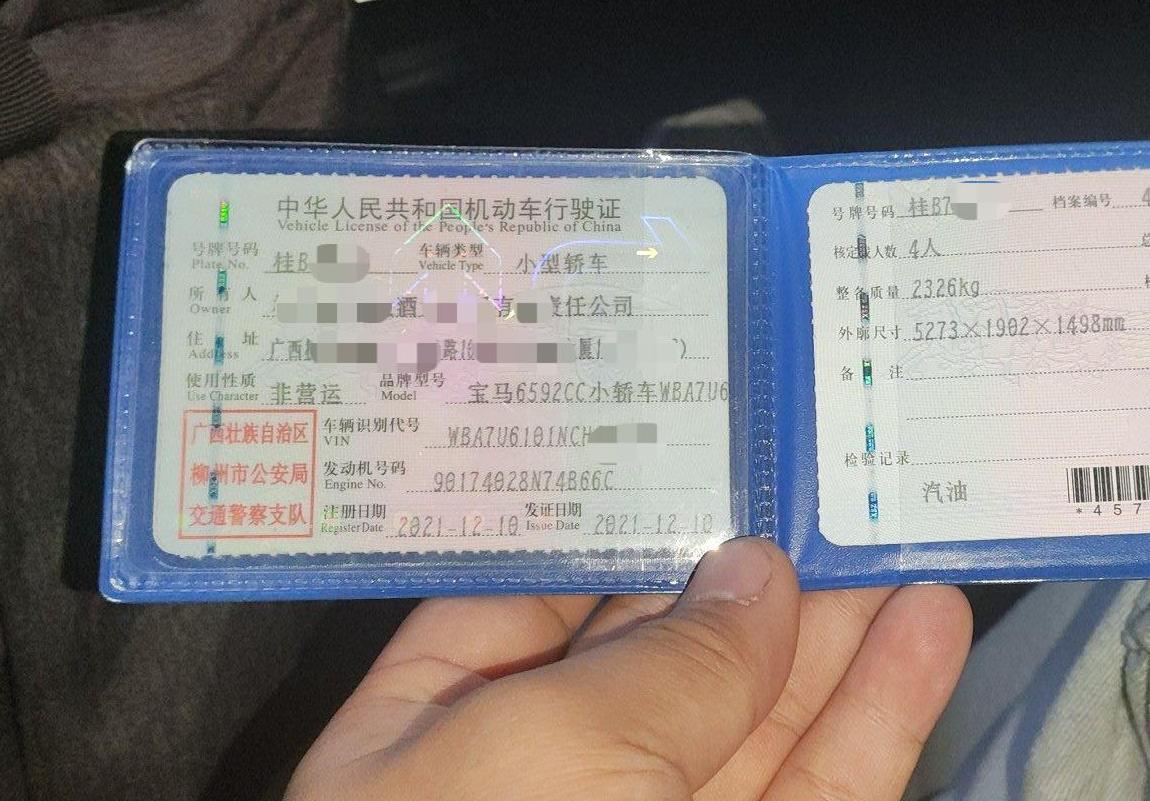 中华人民共和国机动车行驶证
Vehicle License of the People's Republic of China
号牌号码 桂B 车辆类型 小型轿车
Plate No. Vehicle Type
所有人 酒 有 责任公司
Owner
住址 广西 路
Address
使用性质 非营运 品牌型号 宝马6592CC小轿车WBA7U6
Use Character Model
广西壮族自治区
柳州市公安局
交通警察支队
车辆识别代号 WBA7U6101NCH
VIN
发动机号码 90174028N74B66C
Engine No.
注册日期 2021-12-10 发证日期 2021-12-10
Register Date Issue Date
号牌号码 桂B7 档案编号 4
核定载人数 4人
整备质量 2326kg
外廓尺寸 5273×1902×1498mm
备注
检验记录
汽油
*457